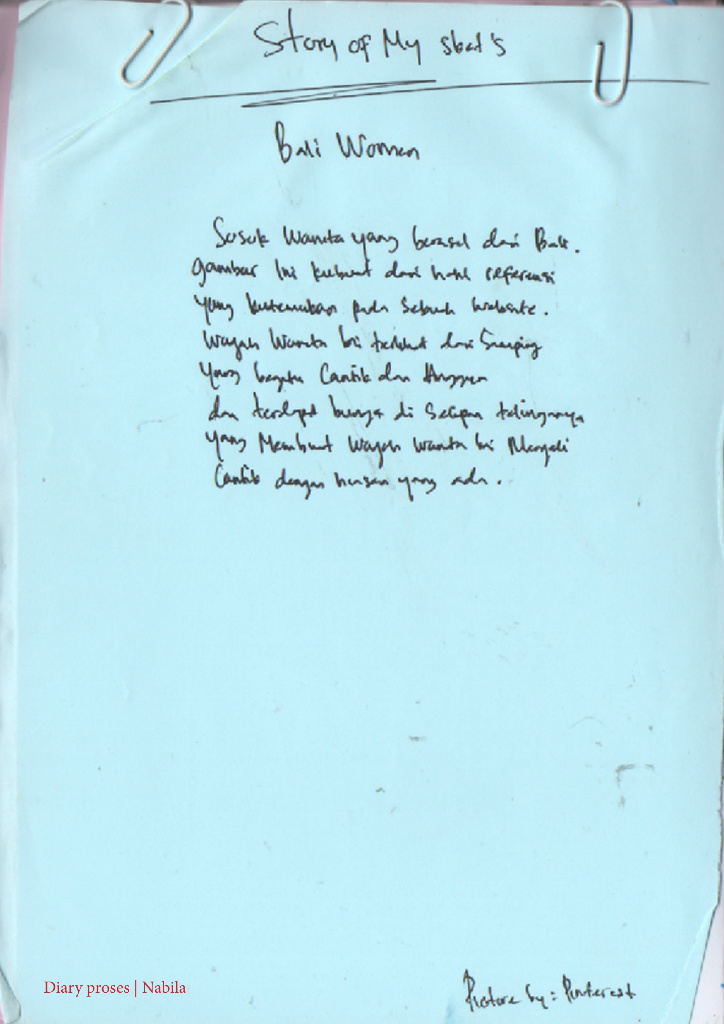 Story of My sket's
Bali Women
Sosok Wanita yang berasal dari Bali.
gambar Ini kubuat dari hasil referensi
yang kutemukan pada Sebuah Website.
Wajah Wanita Ini terlihat dari Samping
yang begitu Cantik dan Anggun
dan terdapat bunga di Selipan telinganya
yang Membuat Wajah Wanita Ini Menjadi
Cantik dengan hiasan yang ada.
Diary proses | Nabila
Picture by : Pinterest